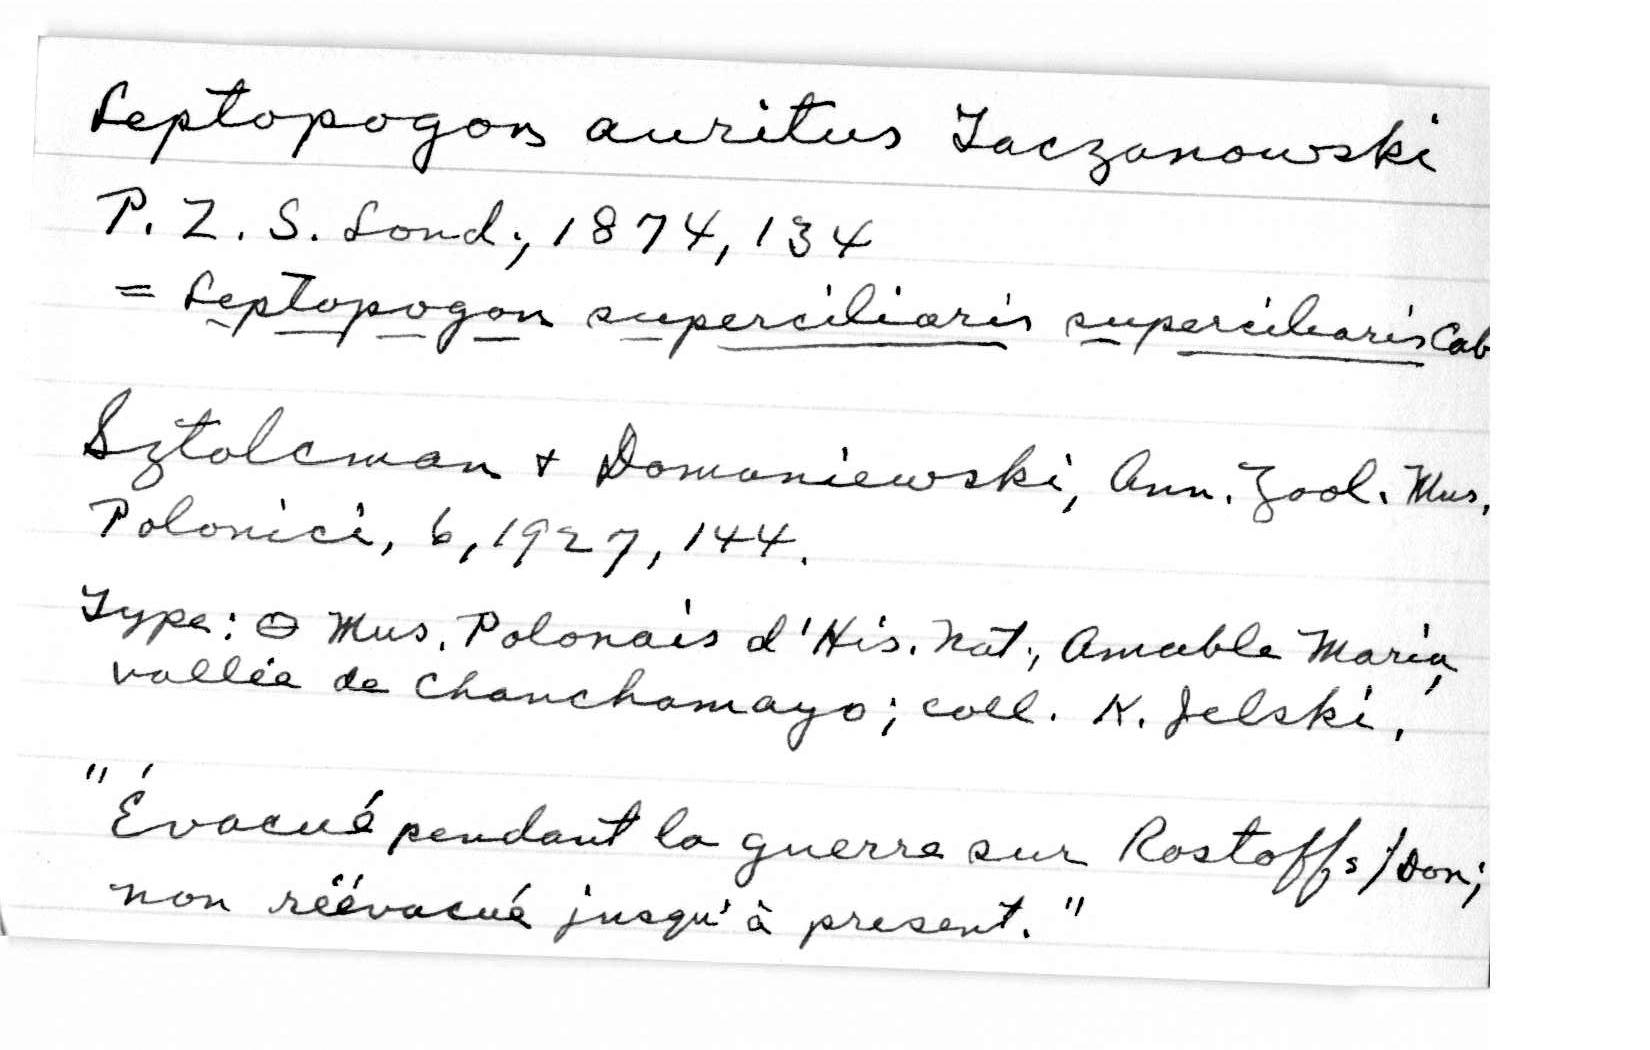 Leptopogon auritus Taczanowski
P. Z. S. Lond., 1874, 134
= Leptopogon superciliaris superciliaris Cab
Sztolcman + Domaniewski, Ann. Zool. Mus.
Polonici, 6, 1927, 144.
Type: ⊖ Mus. Polonais d'His. Nat., Amable Maria,
vallée de Chanchamayo; coll. K. Jelski.
"Évacué pendant la guerre sur Rostoff s/Don;
non réévacué jusqu'à present."